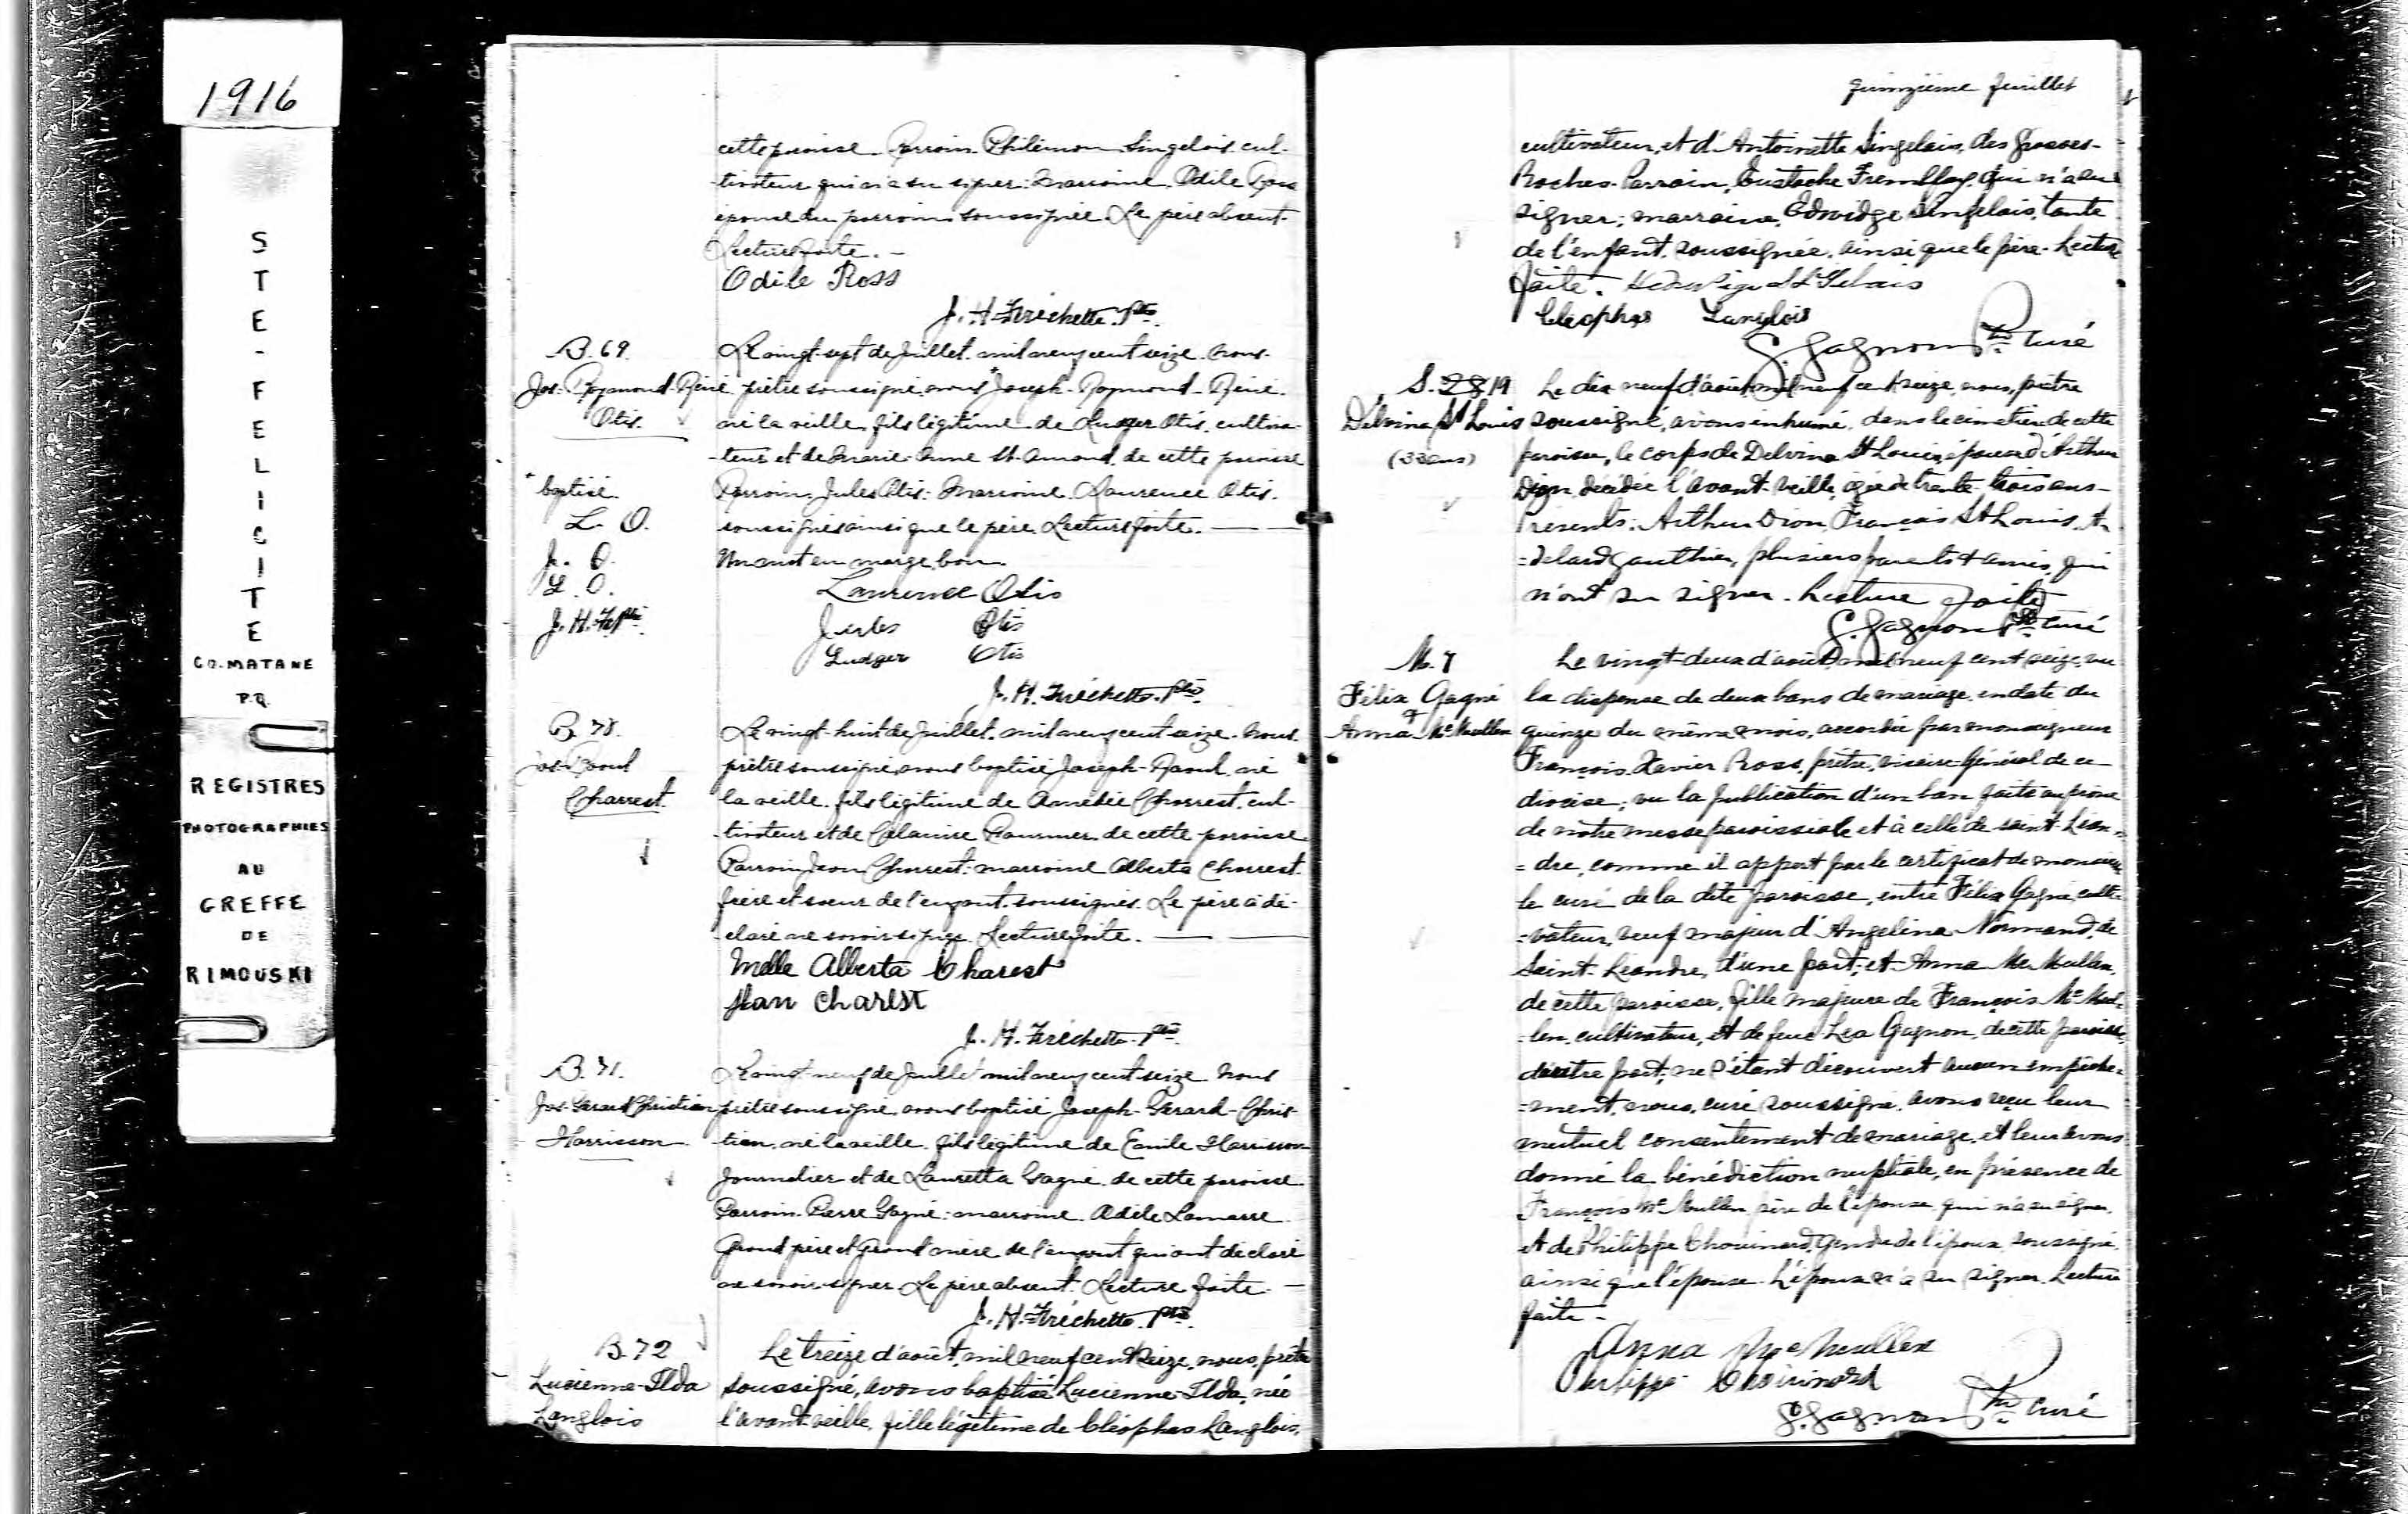 1916
STE-FELICITE
CO. MATANE
P.Q.
REGISTRES
PHOTOGRAPHIES
AU
GREFFE
DE
RIMOUSKI
cette paroisse. Parrain Philémon Singelais cul-
-tivateur qui n'a su signer: Marraine, Odile Ross
épouse du parrain soussignée. Le père absent.
Lecture faite. -
Odile Ross
J. H. Fréchette. Ptre.
B. 69.
Jos. Raymond-René
Otis.
* baptisé.
L. O.
J. O.
L. O.
J. H. F. ptre
Le vingt-sept de Juillet mil neuf cent seize. Nous
prêtre soussigné avons * Joseph-Raymond-René.
né la veille, fils légitime de Ludger Otis, cultiva-
-teur et de Marie-Anne St-Amand, de cette paroisse
Parrain, Jules Otis: Marraine, Laurence Otis.
soussignés ainsi que le père. Lecture faite.
Un mot en marge, bon.
Laurence Otis
Jules Otis
Ludger Otis
J. H. Fréchette. Ptre.
B. 70.
Jos-Raoul
Charrest.
Le vingt-huit de Juillet mil neuf cent seize. Nous
prêtre soussigné, avons baptisé Joseph-Raoul, né
la veille, fils légitime de Amédée Charrest, cul-
-tivateur et de de cette paroisse.
Parrain Jean Charrest: marraine Alberta Charrest.
frère et soeur de l'enfant soussignés. Le père a dé-
-claré ne savoir signer. Lecture faite.
Melle Alberta Charest
Jean Charest
J. H. Fréchette. Ptre.
B. 71.
Jos-Gerard Christian
Harrisson
Le vingt-neuf de Juillet mil neuf cent seize. Nous
prêtre soussigné, avons baptisé Joseph-Gerard-Chris-
tian, né la veille, fils légitime de Emile Harrisson
Journalier et de Lauretta Gagné. de cette paroisse.
Parrain. Pierre Gagné: marraine. Odile Lamarre
Grand père et Grand'mère de l'enfant qui ont déclaré
ne savoir signer. Le père absent. Lecture faite.
J. H. Fréchette. Ptre.
B. 72
Lucienne-Ilda
Langlois
Le treize d'août, mil neuf cent seize, nous, prêtre
soussigné, avons baptisé Lucienne-Ilda, née
l'avant-veille, fille légitime de Cléophas Langlois,
quinzième feuillet
cultivateur, et d'Antoinette Singelais, des Grosses-
Roches. Parrain, Eustache Tremblay, qui n'a su
signer; marraine, Edwidge Singelais, tante
de l'enfant, soussignée, ainsi que le père. Lecture
faite. Hedwige St Gelais
Cléophas Langlois
G. Gagnon Ptre Curé
S. 28 19
Délvina St Louis
(33 ans)
Le dix neuf d'août, mil neuf cent seize, nous, prêtre
soussigné, avons inhumé, dans le cimetière de cette
paroisse, le corps de Delvina St Louis, épouse d'Arthur
Dion, décédée l'avant-veille, âgée de trente trois ans-
Présents: Arthur Dion, François St Louis, A-
=delard Gauthier, plusiers parents & amis, qui
n'ont su signer. Lecture faite
G. Gagnon Ptre curé
M. 7
Félix Gagné
&
Anna Mc Mullen
Le vingt-deux d'août, mil neuf cent seize, vu
la dispense de deux bans de mariage, en date du
quinze du même mois, accordée par monseigneur
François Xavier Ross, prêtre, vicaire-Général de ce
diocèse; vu la publication d'un ban faite au prône
de notre messe paroissiale et à celle de saint Léan-
=dre, comme il appert par le certificat de monsieur
le curé de la dite paroisse, entre Félix Gagné, culti-
=vateur, veuf majeur d'Angelina Normand, de
Saint-Léandre, d'une part; et Anna Mc Mullen,
de cette paroisse, fille majeure de François Mc Mul-
-len, cultivateur, et de feue Léa Gagnon, de cette paroisse,
d'autre part; ne s'étant découvert aucun empêche-
=ment, nous, curé soussigné, avons reçu leur
mutuel consentement de mariage, et leur avons
donné la bénédiction nuptiale, en présence de
François Mc Mullen, père de l'épouse, qui n'a su signer,
et de Philippe Chouinard, gendre de l'époux, soussigné,
ainsi que l'épouse. L'époux n'a su signer. Lecture
faite-
Anna Mc Mullen
Philippe Chouinard
G. Gagnon Ptre Curé